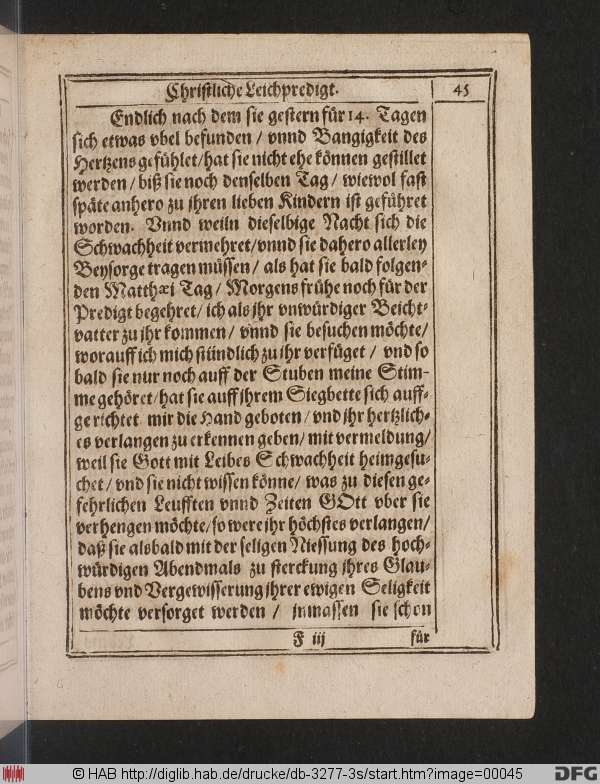 Christliche Leichpredigt. 45
Endlich nach dem sie gestern für 14. Tagen
sich etwas vbel befunden / vnnd Bangigkeit des
Hertzens gefühlet / hat sie nicht ehe können gestillet
werden / biß sie noch denselben Tag / wiewol fast
späte anhero zu ihren lieben Kindern ist geführet
worden. Vnnd weiln dieselbige Nacht sich die
Schwachheit vermehret / vnnd sie dahero allerley
Beysorge tragen müssen / als hat sie bald folgen-
den Matthæi Tag / Morgens frühe noch für der
Predigt begehret / ich als jhr vnwürdiger Beicht-
vatter zu jhr kommen / vnnd sie besuchen möchte /
worauff ich mich stündlich zu ihr verfüget / vnd so
bald sie nur noch auff der Stuben meine Stim-
me gehöret / hat sie auff ihrem Siegbette sich auff-
gerichtet mir die Hand geboten / vnd jhr hertzlich-
es verlangen zu erkennen geben / mit vermeldung /
weil sie Gott mit Leibes Schwachheit heimgesu-
chet / vnd sie nicht wissen könne / was zu diesen ge-
fehrlichen Leufften vnnd Zeiten GOtt vber sie
verhengen möchte / so were ihr höchstes verlangen /
daß sie alsbald mit der seligen Niessung des hoch-
würdigen Abendmals zu sterckung jhres Glau-
bens vnd Vergewisserung jhrer ewigen Seligkeit
möchte versorget werden / jnmassen sie schon
F iij für
© HAB http://diglib.hab.de/drucke/db-3277-3s/start.htm?image=00045
DFG